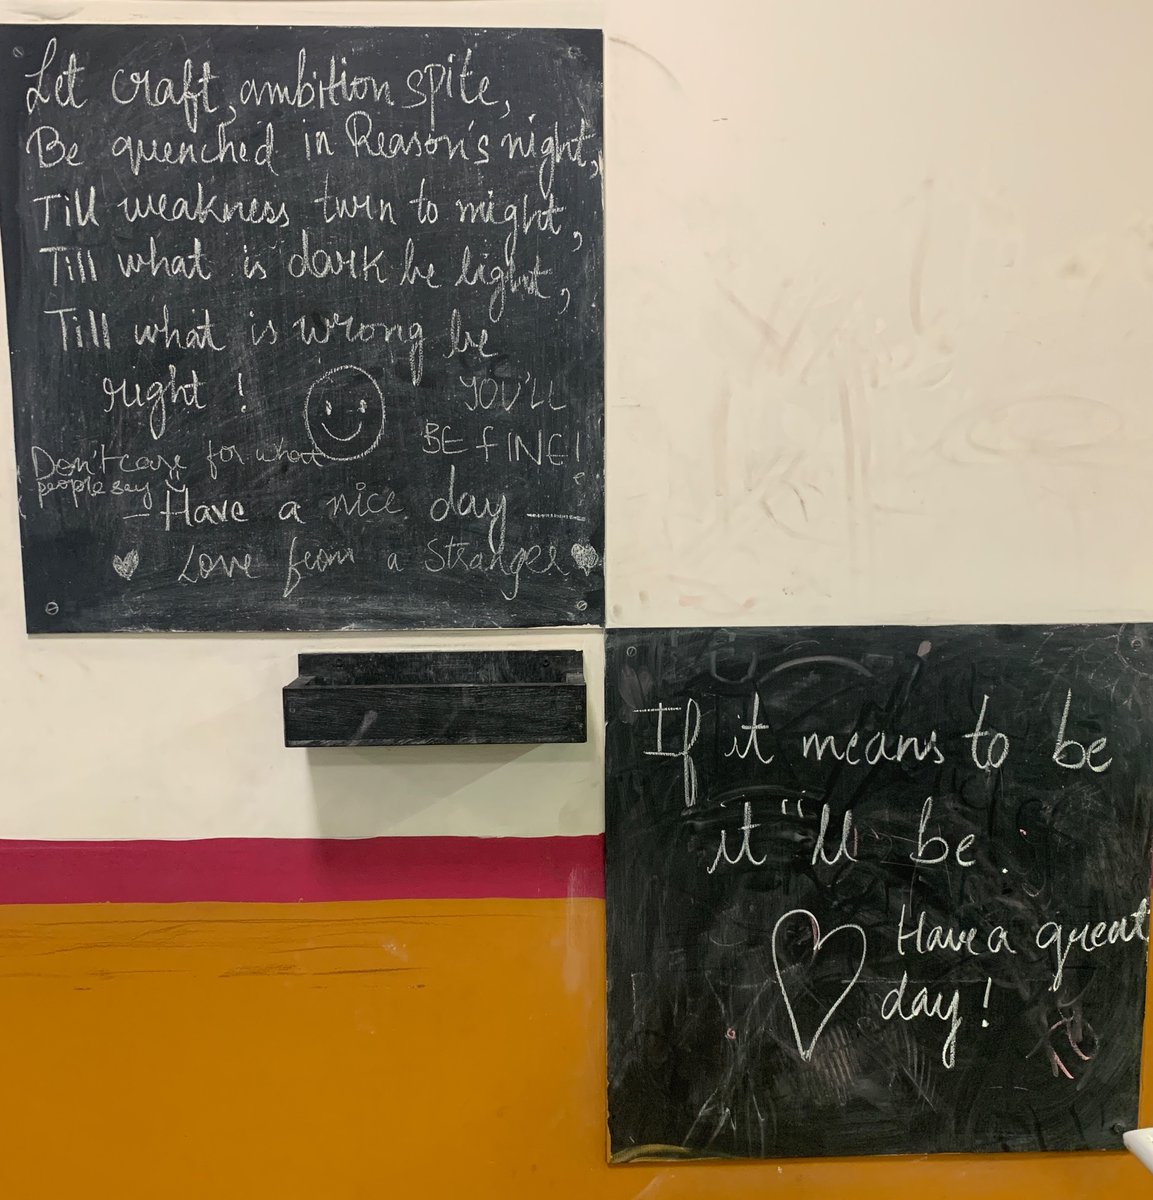 Let craft, ambition spite,
Be quenched in Reason's night,
Till weakness turn to might,
Till what is dark be light,
Till what is wrong be
right !
YOU'LL
BE fINE!
Don't care for what
people say
- Have a nice day -
Love from a Stranger
If it means to be
it"ll be.
Have a great
day!